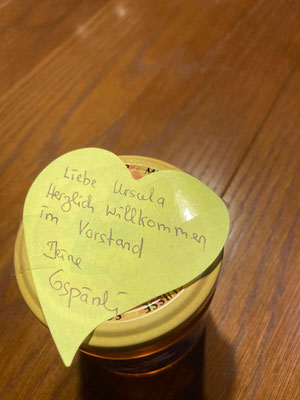 Liebe Ursula
Herzlich Willkommen
im Vorstand
Deine
Gspänli